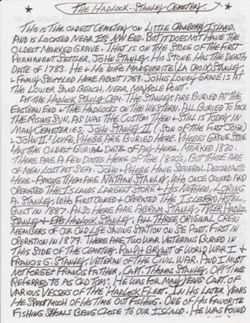 THE HADLOCK-STANLEY CEMETERY
THIS IS THE OLDEST CEMETERY ON LITTLE CRANBERRY ISLAND.
AND IS LOCATED NEAR ITS NW END. BUT IT DOES NOT HAVE THE
OLDEST MARKED GRAVE. THAT IS ON THE STONE OF THE FIRST
PERMANENT SETTLER, JOHN STANLEY. HIS STONE HAS THE DEATH
DATE OF 1783. HE & HIS WIFE MARGUERITE (LA CROIX) STANLEY,
LOWER SAND BEACH, NEAR MAYPOLE POINT.
AT THE HADLOCK-STANLEY CEM. THE STANLEYS ARE BURIED AT THE
EASTERN END & THE HADLOCKS ON THE WESTERN. ALL BURIED TO FACE
THE RISING SUN, AS WAS THE CUSTOM THEN & STILL IS TODAY IN
MANY CEMETERIES. JOHN STANLEY II (SON OF THE FIRST JOHN)
& JOHN II'S WIFE PHEBE ARE BURIED HERE. PHEBE'S GRAVE STONE
HAS THE OLDEST BURIAL DATE OF ANY HERE. MARKED 1830.
THERE ARE A FEW DATES HERE OF THE 1820S, BUT THESE ARE
OF MEN LOST AT SEA. JOHN & PHEBE HAVE SEVERAL DESCENDENTS
HERE. AMONG THEM ARE NATHAN STANLEY, WHO ONCE OWNED AND
OPERATED THE ISLANDS LARGEST STORE & HIS NEPHEW, LORING
A. STANLEY, WHO FIRST OWNED & OPERATED THE ISLESFORD HOTEL.
BUILT IN 1887. ALSO HERE ARE
STANLEY & ALL THREE ORIGINAL CREW
MEMBERS OF OUR OLD LIFE SAVING STATION ON SE POINT. FIRST IN
OPERATION IN 1879. THERE ARE TWO WAR VETERANS BURIED IN
THIS SIDE OF THE CEMETERY. RALPH BRYANT OF WORLD WAR I &
FRANCIS G. STANLEY VETERAN OF THE CIVIL WAR. AND I MUST
NOT FORGET FRANCIS FATHER, CAPT. THOMAS STANLEY, OFTIME
REFERRED TO AS OLD TOM. HE WAS FOR MANY YEARS CAPT. ON
VARIOUS VESSELS OF THE HADLOCK FLEET. IN HIS LATER YEARS
HE SPENT MUCH OF HIS TIME OUT FISHING. ONE OF HIS FAVORITE
FISHING SHOALS BEING CLOSE TO OUR ISLAND. HE WAS FOUND